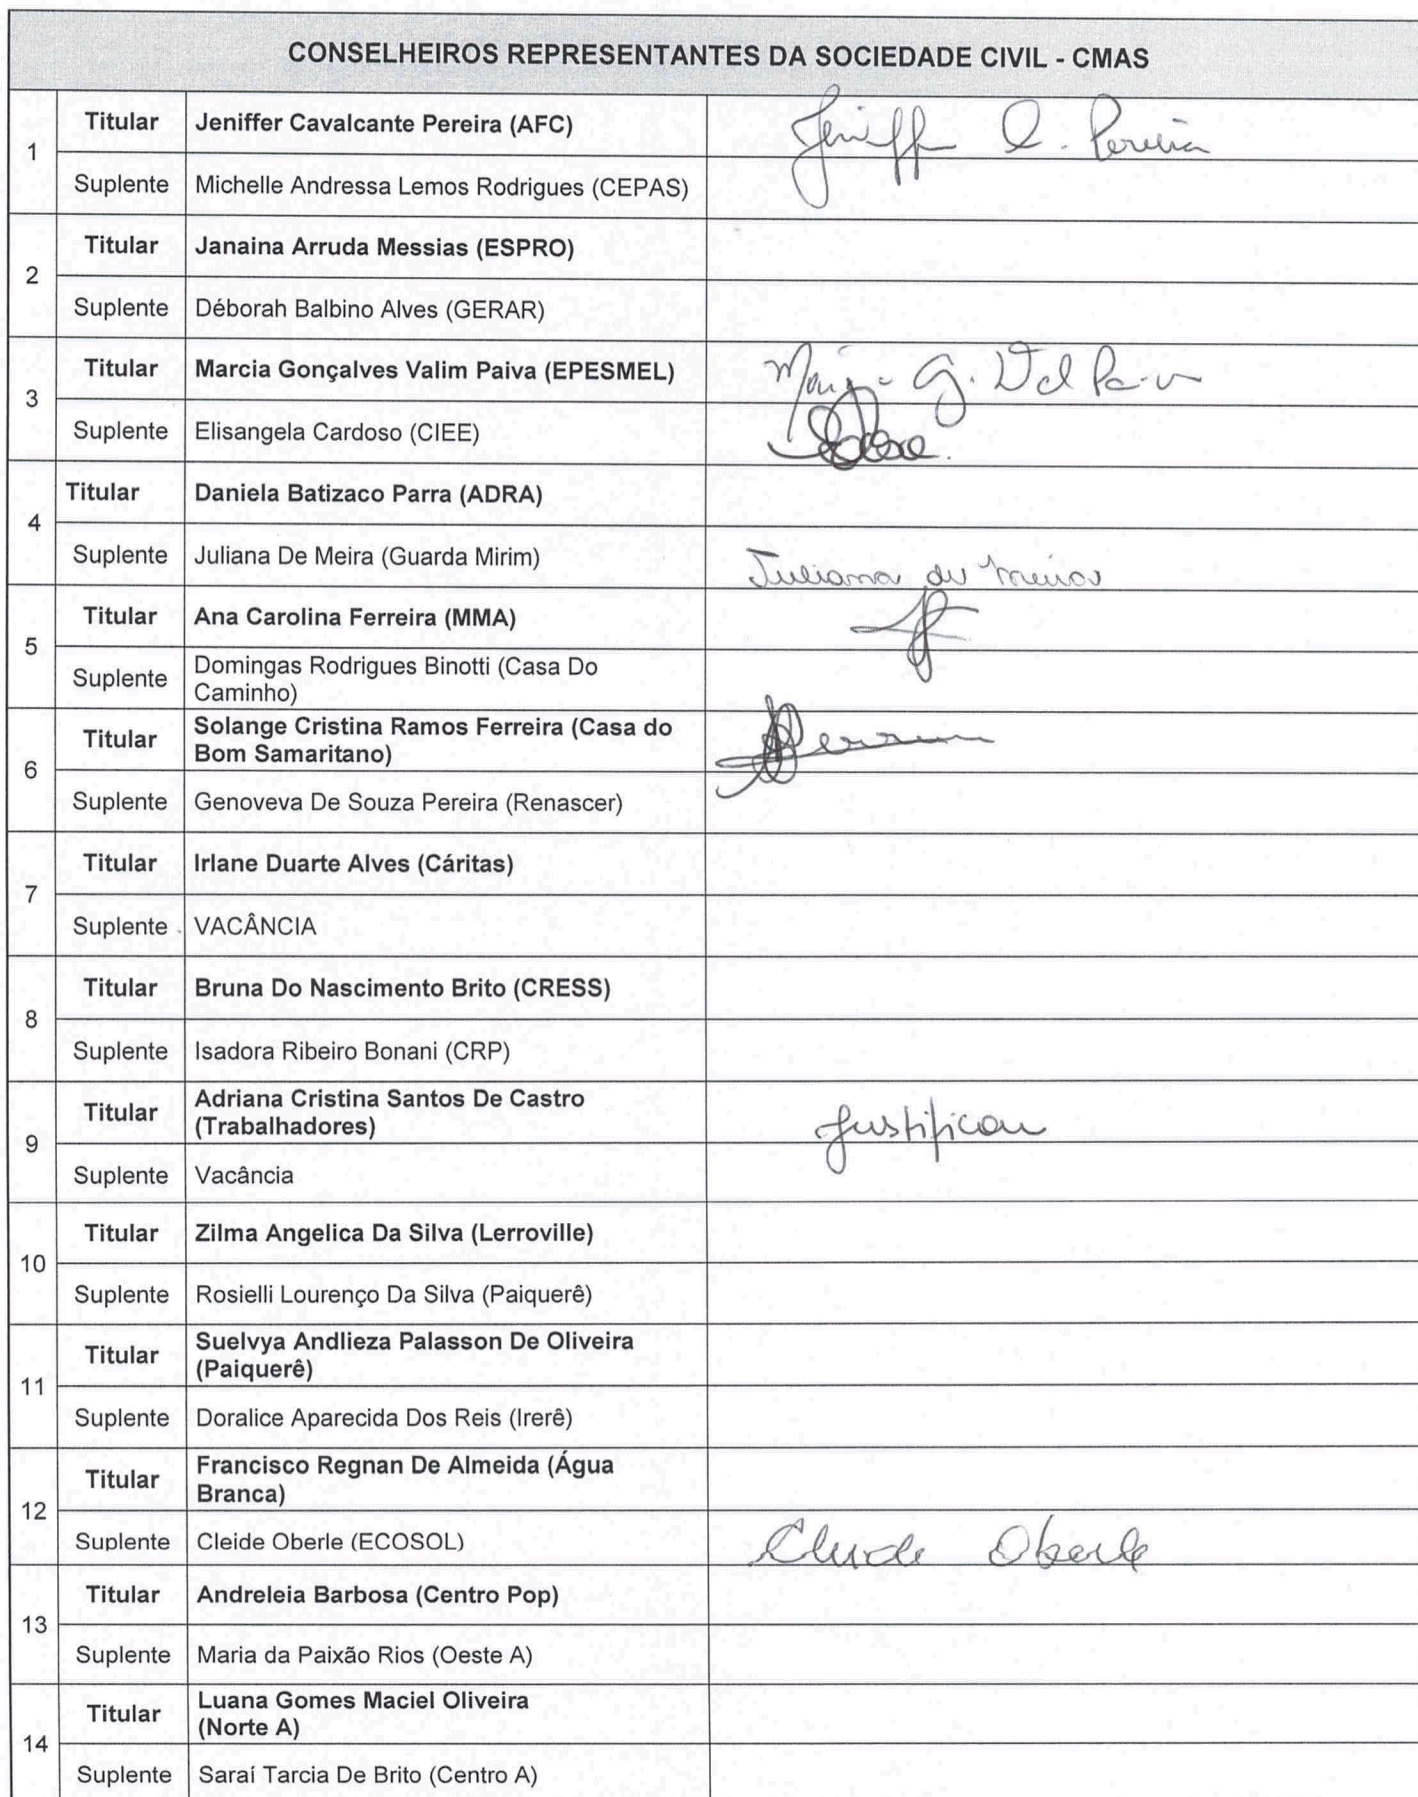 CONSELHEIROS REPRESENTANTES DA SOCIEDADE CIVIL - CMAS
1
Titular Jeniffer Cavalcante Pereira (AFC) Jeniffer C. Pereira
Suplente Michelle Andressa Lemos Rodrigues (CEPAS)
2
Titular Janaina Arruda Messias (ESPRO)
Suplente Déborah Balbino Alves (GERAR)
3
Titular Marcia Gonçalves Valim Paiva (EPESMEL)
Suplente Elisangela Cardoso (CIEE)
4
Titular Daniela Batizaco Parra (ADRA)
Suplente Juliana De Meira (Guarda Mirim) Juliana de Meira
5
Titular Ana Carolina Ferreira (MMA)
Suplente Domingas Rodrigues Binotti (Casa Do
Caminho)
6
Titular Solange Cristina Ramos Ferreira (Casa do
Bom Samaritano)
Suplente Genoveva De Souza Pereira (Renascer)
7
Titular Irlane Duarte Alves (Cáritas)
Suplente VACÂNCIA
8
Titular Bruna Do Nascimento Brito (CRESS)
Suplente Isadora Ribeiro Bonani (CRP)
9
Titular Adriana Cristina Santos De Castro
(Trabalhadores) Justificou
Suplente Vacância
10
Titular Zilma Angelica Da Silva (Lerroville)
Suplente Rosielli Lourenço Da Silva (Paiquerê)
11
Titular Suelvya Andlieza Palasson De Oliveira
(Paiquerê)
Suplente Doralice Aparecida Dos Reis (Irerê)
12
Titular Francisco Regnan De Almeida (Água
Branca)
Suplente Cleide Oberle (ECOSOL) Cleide Oberle
13
Titular Andreleia Barbosa (Centro Pop)
Suplente Maria da Paixão Rios (Oeste A)
14
Titular Luana Gomes Maciel Oliveira
(Norte A)
Suplente Saraí Tarcia De Brito (Centro A)